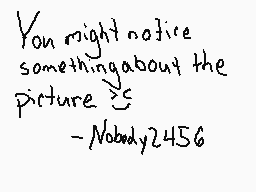 You might notice
something about the
picture >:c
- Nobody2456